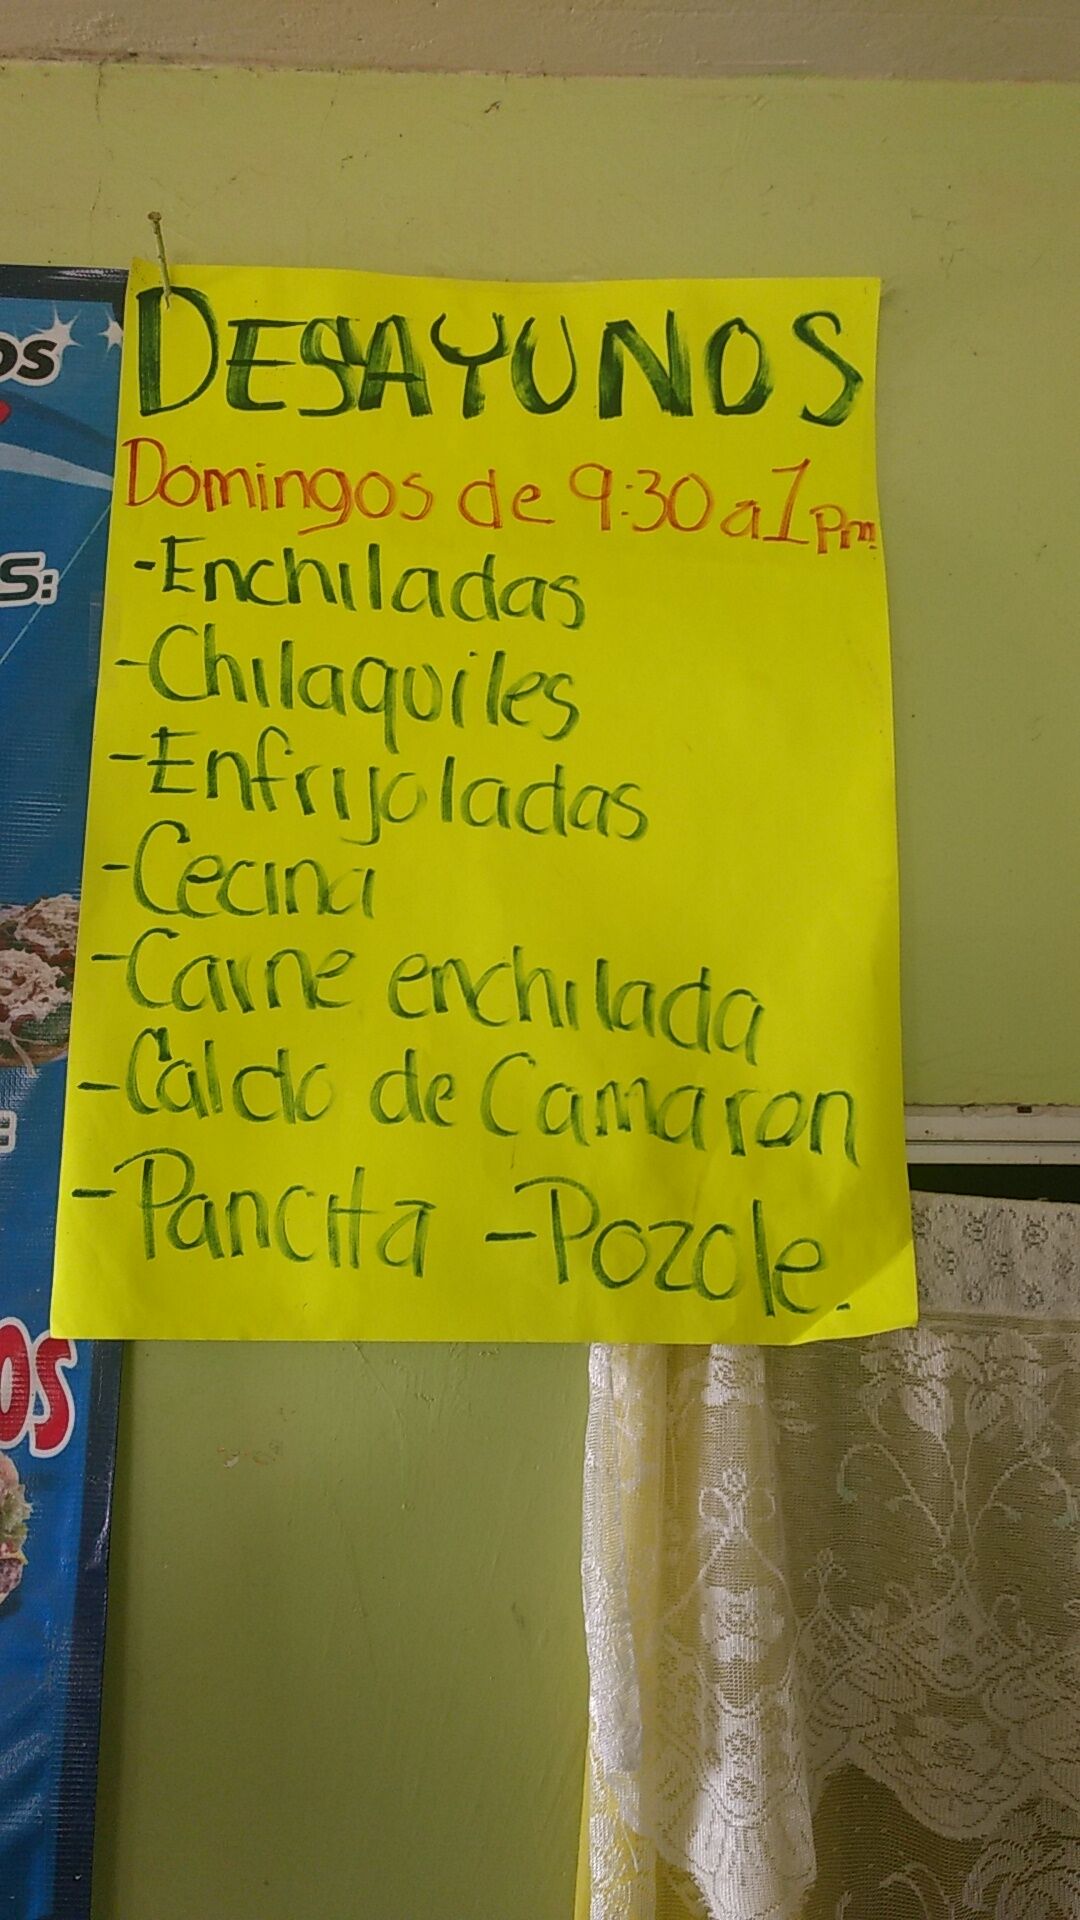 DESAYUNOS
Domingos de 9:30 a 1 pm
-Enchiladas
-Chilaquiles
-Enfrijoladas
-Cecina
-Carne enchilada
-Caldo de Camaron
-Pancita -Pozole.
OS
S:
OS